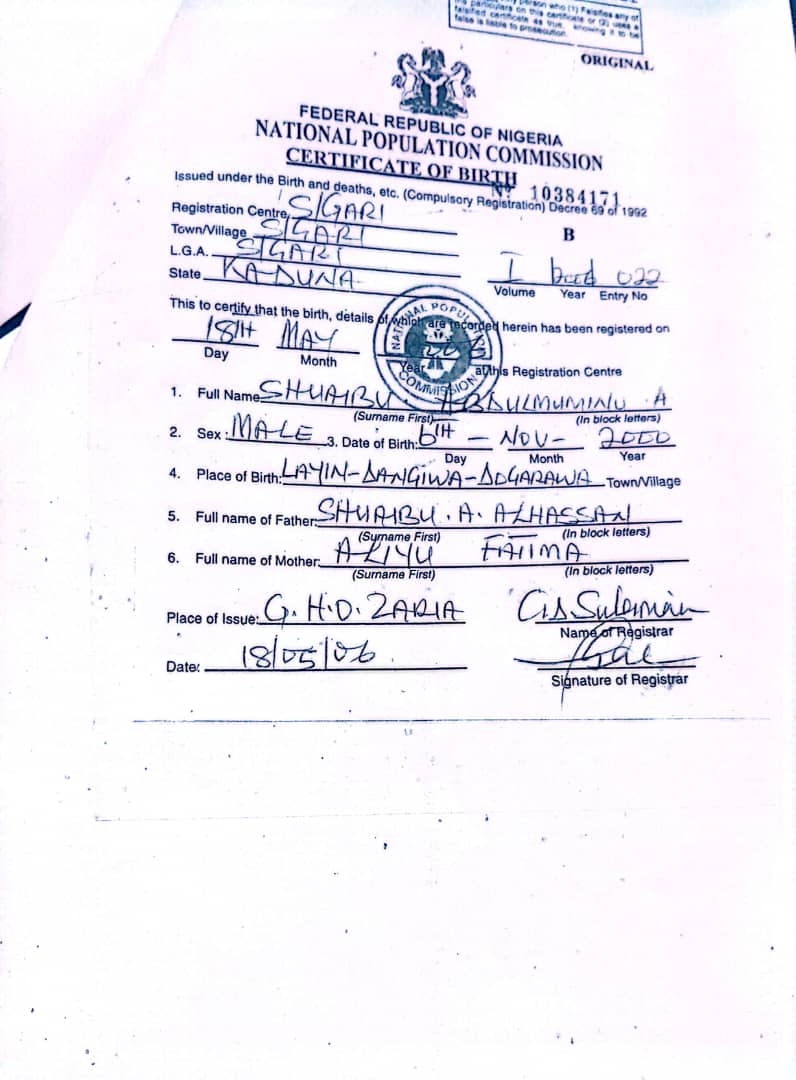 person who (1) Falsifies any of
the particulars on this certificate or (2) uses a
falsified certificate as true, knowing it to be
false is liable to prosecution.
ORIGINAL
FEDERAL REPUBLIC OF NIGERIA
NATIONAL POPULATION COMMISSION
CERTIFICATE OF BIRTH
Nº 10384171
Issued under the Birth and deaths, etc. (Compulsory Registration) Decree 69 of 1992
Registration Centre S/GARI
B
Town/Village S/GARI
L.G.A. S/GARI
State KADUNA
I 022
Volume Year Entry No
This to certify that the birth, details of which are recorded herein has been registered on
18TH MAY
Day Month Year at this Registration Centre
NATIONAL POPULATION COMMISSION
1. Full Name SHUAIBU ABDULMUMINU A
(Surname First) (In block letters)
2. Sex: MALE 3. Date of Birth: 6TH - NOV - 2000
Day Month Year
4. Place of Birth: LAYIN-DANGIWA-DOGARAWA Town/Village
5. Full name of Father: SHUAIBU. A. ALHASSAN
(Surname First) (In block letters)
6. Full name of Mother: ALIYU FATIMA
(Surname First) (In block letters)
Place of Issue: G.H.D. ZARIA Suleiman
Name of Registrar
Date: 18/05/06
Signature of Registrar